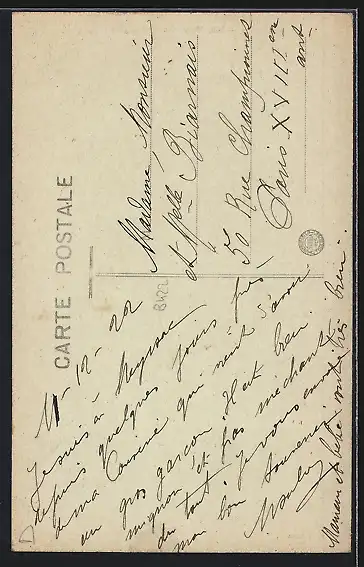 CARTE POSTALE
Madame, Monsieur
et Melle Biarnais
50 Rue Championnet
Paris XVIII em
arrt
8422
11-12-22
Je suis à Meyssac
depuis quelques jours près
de ma Cousine qui vient d'avoir
un gros garçon. Il est bien
mignon et pas méchant
du tout. Je vous envoie
mon bon souvenir.
Maman et bébé vont très bien.